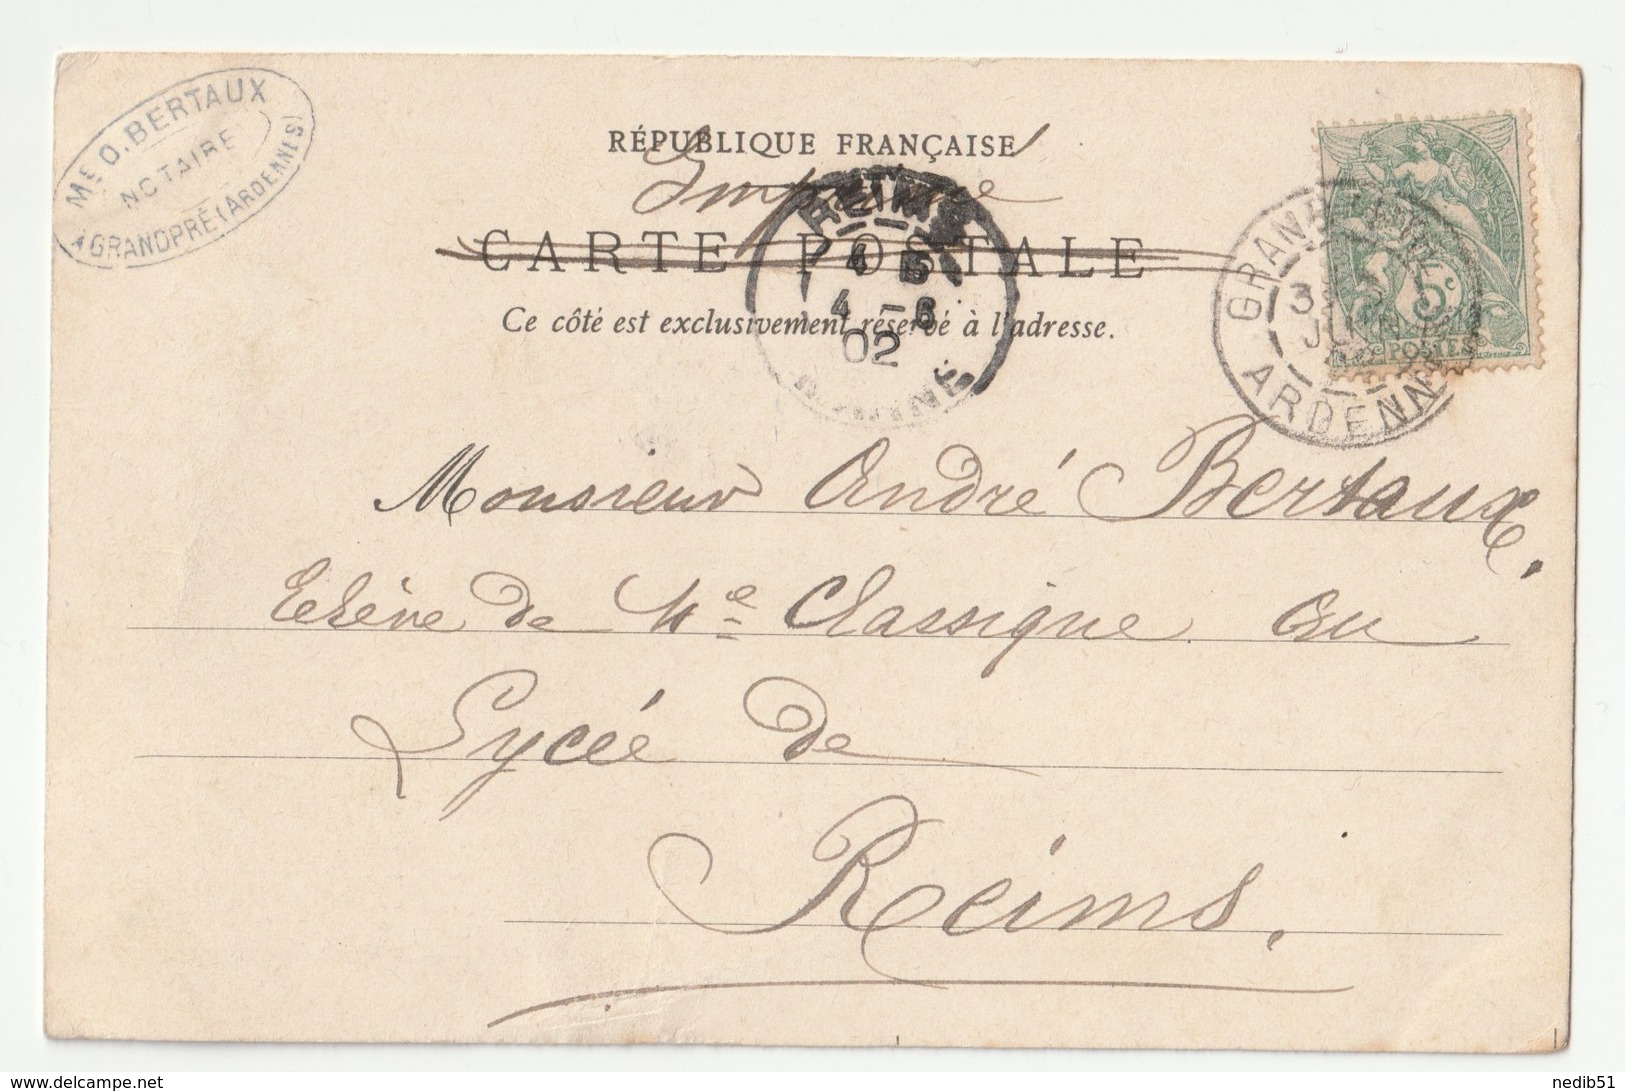 Me O. BERTAUX
NOTAIRE
A GRANDPRÉ (ARDENNES)
RÉPUBLIQUE FRANÇAISE
Imprimé
CARTE POSTALE
Ce côté est exclusivement réservé à l'adresse.
REIMS
4 - 6
02
MARNE
ARDENNES
5c
POSTES
Monsieur André Bertaux,
Elève de 4e Classique au
Lycée de
Reims,
delcampe.net
nedib51